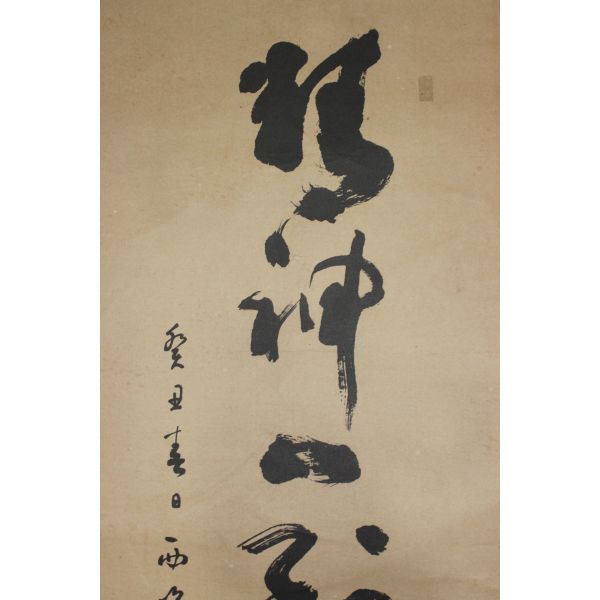 精神一到
癸丑春日西